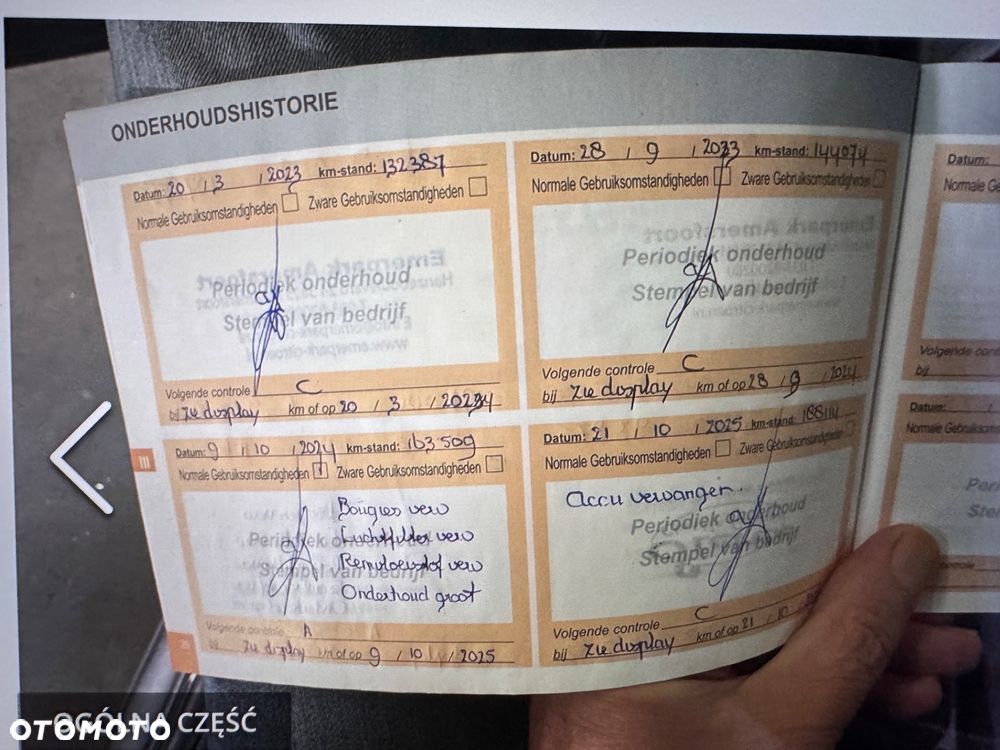 ONDERHOUDSHISTORIE
Datum: 20 / 3 / 2023 km-stand: 132387
Normale Gebruiksomstandigheden Zware Gebruiksomstandigheden
Periodiek onderhoud
Stempel van bedrijf
Volgende controle C
bij Zie display km of op 20 / 3 / 20234
Datum: 28 / 9 / 2023 km-stand: 144074
Normale Gebruiksomstandigheden Zware Gebruiksomstandigheden
Periodiek onderhoud
Stempel van bedrijf
Volgende controle C
bij Zie display km of op 28 / 9 / 2024
III
Datum: 9 / 10 / 2024 km-stand: 163509
Normale Gebruiksomstandigheden Zware Gebruiksomstandigheden
Bougies verv
Luchtfilter verv
Remvloeistof verv
Onderhoud groot
Periodiek onderhoud
Stempel van bedrijf
Volgende controle A
bij Zie display km of op 9 / 10 / 2025
Datum: 21 / 10 / 2025 km-stand: 188114
Normale Gebruiksomstandigheden Zware Gebruiksomstandigheden
Accu vervangen.
Periodiek onderhoud
Stempel van bedrijf
Volgende controle C
bij Zie display km of op 21 / 10
Datum:
Normale
Volgende
bij
Datum:
Normale
OGÓLNA CZĘŚĆ
OTOMOTO